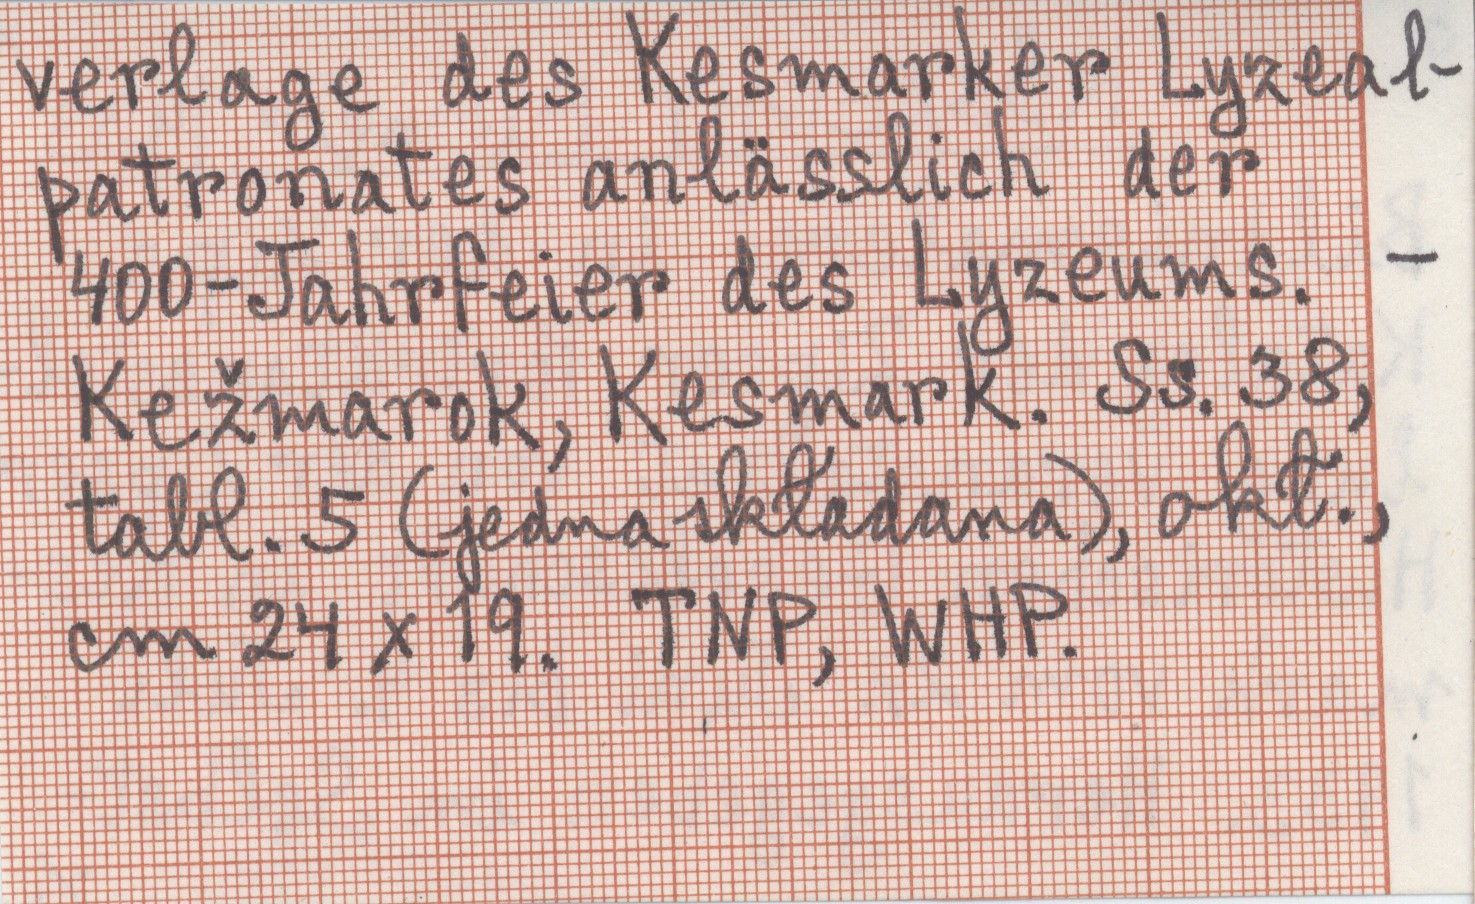 verlage des Kesmarker Lyzeal-
patronates anlässlich der
400-Jahrfeier des Lyzeums. -
Kežmarok, Kesmark. Ss. 38,
tabl. 5 (jedna składana), okt.,
cm 24 x 19. TNP, WHP.